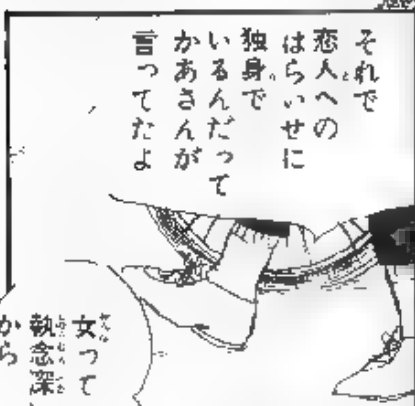 それで
恋人への
はらいせに
独身で
いるんだって
かあさんが
言ってたよ
女って
執念深
から